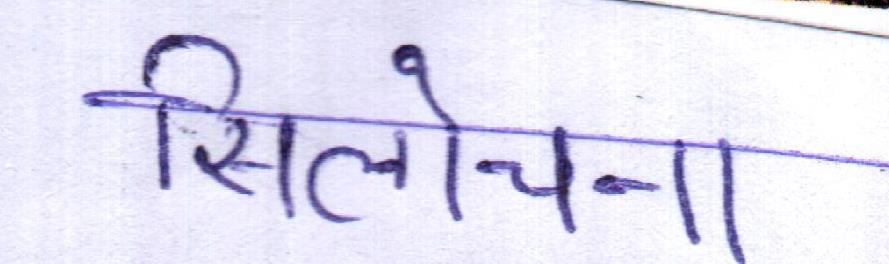 सिलोचना